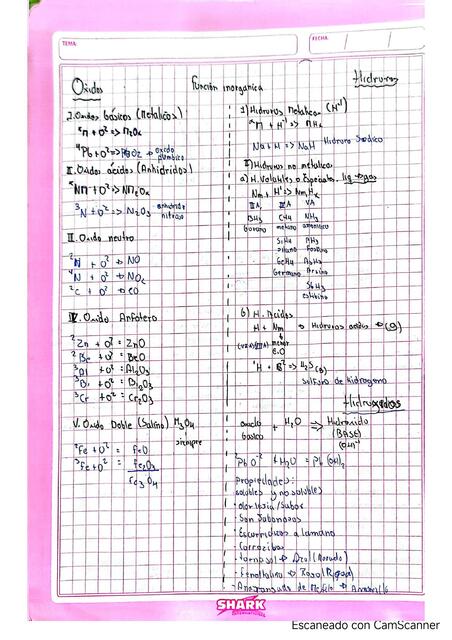 TEMA:
FECHA:
Función inorgánica
Oxidos
I. Oxidos básicos (Metálicos)
ˣm + O² => M₂Oₓ
⁴Pb + O² => PbO₂ → oxido plumbico
II. Oxidos ácidos (Anhidridos)
ˣNm + O² => Nm₂Oₓ
³N + O² => N₂O₃ anhidrido nitroso
II. Oxido neutro
²N + O² => NO
⁴N + O² => NO₂
²C + O² => CO
IV. Oxido Anfotero
²Zn + O² = ZnO
²Be + O² = BeO
³Al + O² = Al₂O₃
³Bi + O² = Bi₂O₃
³Cr + O² = Cr₂O₃
V. Oxido Doble (Salino) M₃O₄
siempre
²Fe + O² = FeO
³Fe + O² = Fe₂O₃
Fe₃O₄
Hidruros
1) Hidruros Metalicos (H⁻¹)
ˣm + H⁻¹ => MHₓ
Na + H => NaH Hidruro Sodico
2) Hidruros no metalicos
a) H. Volatiles o Especiales.
Nm + H¹ => NmₓHₓ
IIIA, IVA VA
BH₃ CH₄ NH₃
borano metano amoniaco
SiH₄ PH₃
silano fosfina
GeH₄ AsH₃
Germano Arsina
SbH₃
estibina
b) H. Acidos
H + Nm → Hidruros acidos → (g)
(VIA)(VIIA) menor
E.O
¹H + S² => H₂S(g)
Sulfuro de hidrogeno
Hidroxidos
oxido basico + H₂O => Hidroxido
(BASE)
(OH)⁻¹
²PbO⁻² + H₂O = Pb(OH)₂
Propiedades:
solubles y no solubles
Son Jabonosos
Escurridizos a la mano
Corrosibos
tornasol → Azul (Morado)
Fenoltalina → Rosa (Rojo)
SHARK
Escaneado con CamScanner